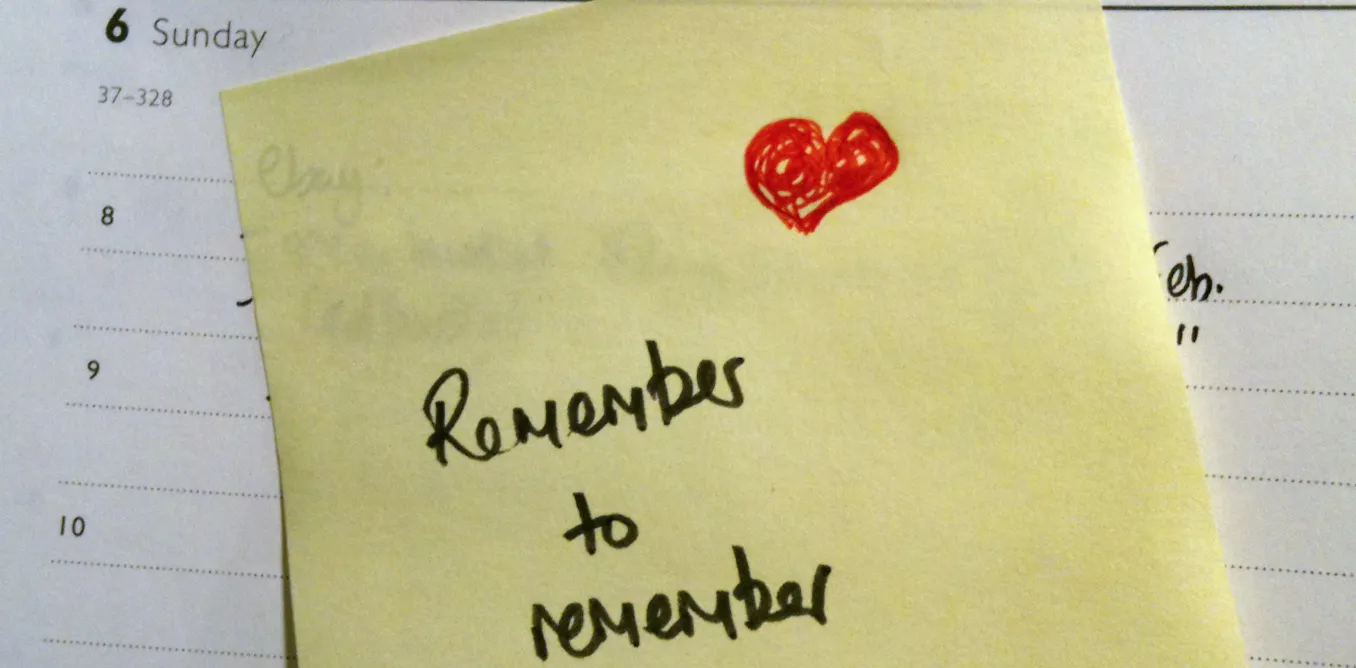 6 Sunday
37-328
ebay:
8
eb.
"
9
Remember
10
to
remember